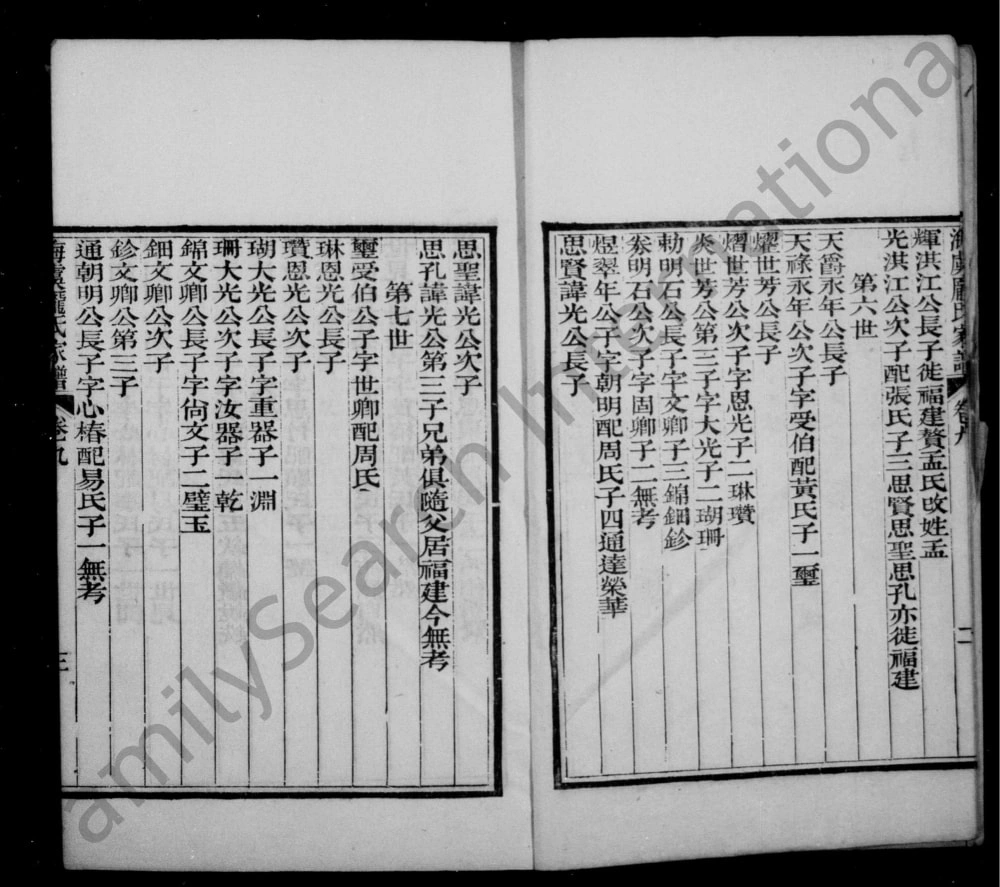 海虞龐氏家譜 卷九 二
輝洪江公長子徙福建贅孟氏改姓孟
光洪江公次子配張氏子三思賢思聖思孔亦徙福建
第六世
天爵永年公長子
天祿永年公次子字受伯配黃氏子一璽
燿世芳公長子
熠世芳公次子字恩光子二琳瓚
世芳公第三子字大光子二瑚珊
勅明石公長子字文卿子三錦鈿鉁
明石公次子字固卿子二無考
煜翠年公子字朝明配周氏子四通達榮華
思賢諱光公長子
思聖諱光公次子
思孔諱光公第三子兄弟俱隨父居福建今無考
第七世
璽受伯公子字世卿配周氏
琳恩光公長子
瓚恩光公次子
瑚大光公長子字重器子一淵
珊大光公次子字汝器子乾
錦文卿公長子字尙文子二璧玉
鈿文卿公次子
鉁文卿公第三子
通朝明公長子字心椿配易氏子一無考
海虞龐氏家譜 卷九 三
FamilySearch International